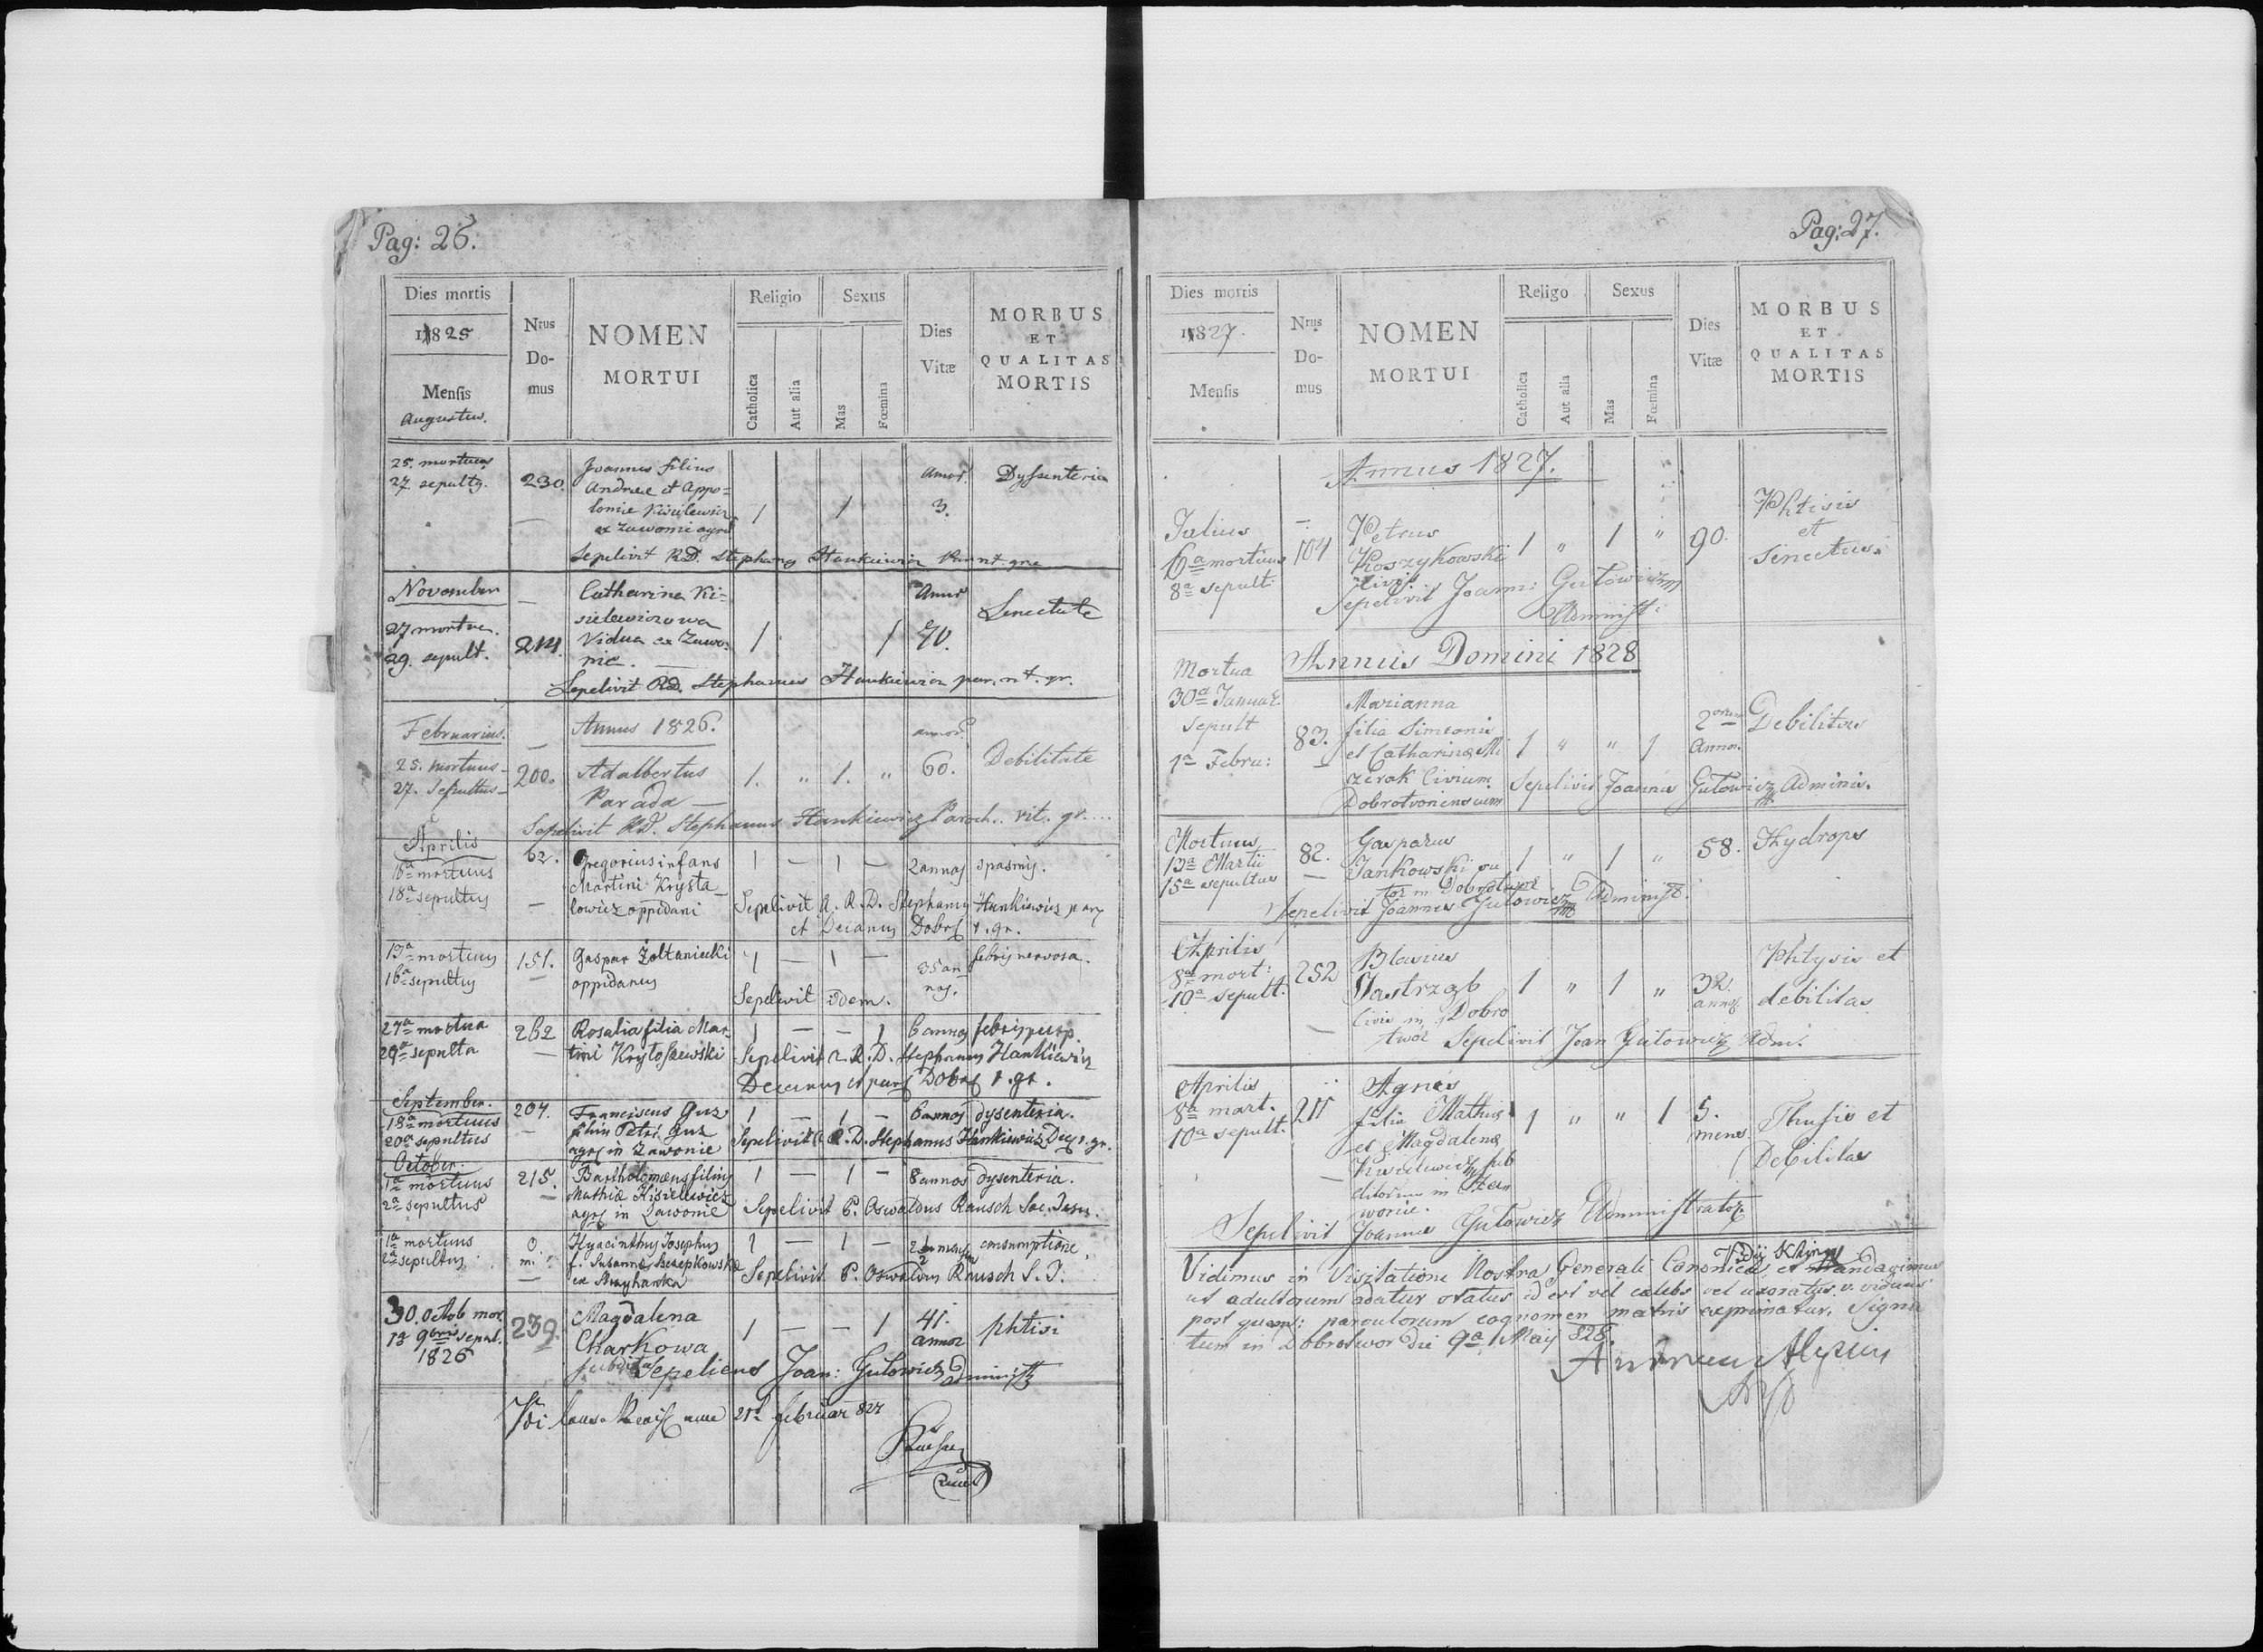 Pag: 26.
Dies mortis
1825
Mensis
Augustus.
Nrus
Do-
mus
NOMEN
MORTUI
Religio
Catholica
Aut alia
Sexus
Mas
Fœmina
Dies
Vitæ
MORBUS
ET
QUALITAS
MORTIS
25. mortuus
27. sepultg.
230.
Joannes filius
Andreae et Appo=
lonie Kisielewicz
ex Zawonie agric
1
1
Annor.
3.
Dyssenteria
Sepelivit RD. Stephanus Hankiewicz
November
27 mortua.
29. sepult.
214.
Catharina Ki=
sielewiczowa
Vidua ex Zawo-
nie.
1
1
Annor
70.
Senectute
Sepelivit RD. Stephanus Hankiewicz par. rit. gr.
Februarius.
Annus 1826.
25. mortuus
27. Sepultus
200.
Adalbertus
Parada
1. " 1. "
annor.
60.
Debilitate
Sepelivit RD. Stephanus Hankiewicz Paroch. rit. gr....
Aprilis
16a mortuus
18a sepultus
62.
Gregorius infans
Martini Krysta
lowicz oppidani
1 — 1 —
2 annos
spasmis.
Sepelivit A. R. D. Stephanus Hankiewicz par
et Decanus Dobr r. gr.
13a mortuus
16a sepultus
151.
Gaspar Żołtaniecki
oppidanus
1 — 1 —
35 an-
nos.
febris nervosa.
Sepelivit idem.
27a mortua
29a sepulta
262
Rosalia filia Mar
tini Krytoszewski
1 — — 1
6 annos
febris purp.
Sepelivit A. R. D. Stephanus Hankiewicz
Decanus et par Dobr r. gr.
September.
18a mortuus
20a sepultus
204.
Franciscus Guz
filius Petri Guz
agr in Zawonie
1 — 1 —
6 annos
dysenteria.
Sepelivit A. R. D. Stephanus Hankiewicz Dec r. gr.
October.
1a mortuus
2a sepultus
215.
Bartholomæus filius
Mathiæ Kisielewicz
agr in Zawonie
1 — 1 —
8 annos
dysenteria.
Sepelivit P. Oswaldus Rausch Soc. Jesu.
1a mortuus
2a sepultus
0.
m.
Hyacinthus Josephus
f. Susannæ
ex
1 — 1 —
2
consumptione.
Sepelivit P. Oswaldus Rausch S. J.
30. octob mor.
1a 9bris sepul.
1826
239.
Magdalena
Charkowa
subdita
1 — — 1
41.
annor
phtisi
Sepeliens Joan: Gutowicz Administr
21a februar 827
Pag: 27.
Dies mortis
1827.
Mensis
Nrus
Do-
mus
NOMEN
MORTUI
Religo
Catholica
Aut alia
Sexus
Mas
Fœmina
Dies
Vitæ
MORBUS
ET
QUALITAS
MORTIS
Annus 1827.
Julius
6a mortuus
8a sepult
104
Petrus
Koszykowski
Civis
1 " 1 "
90.
Phtisis
et
Senectus.
Sepelivit Joann: Gutowicz
Administ:
Annus Domini 1828
Mortua
30a Januar.
Sepult
1a Febru:
83.
Marianna
filia Simeonis
et Catharinæ Mi
czerak Civium
Dobrotvoriensium
1 " " 1
2orum
Annor.
Debilitas
Sepelivit Joannes Gutowicz Adminis.
Mortuus
13a Martii
15a sepultus
82.
Gasparus
Jankowski su
tor in Dobrotwor
1 " 1 "
58.
Hydrops
Sepelivit Joannes Gutowicz Administ.
Aprilis
8a mort:
10a sepult.
252
Blasius
Jastrząb
Civis in Dobro
twór
1 " 1 "
32.
annos.
Phtysis et
debilitas
Sepelivit Joan Gutowicz Adm.
Aprilis
8a mart.
10a sepult.
211
Agnes
filia Mathiæ
et Magdalenæ
Kisielewicz sub
ditorum in
wonie.
1 " " 1
5.
mens.
Thusis et
Debilitas
Sepelivit Joannes Gutowicz Administrator
Vidimus in Visitatione Nostra Generali Canonica et Mandavimus
ut adultorum adatur status id est vel cælebs vel uxoratus v. viduus
post parvulorum cognomen matris exprimatur. Signa
tum in Dobrotwor die 9a Maij 828.
Andreas Alojsius